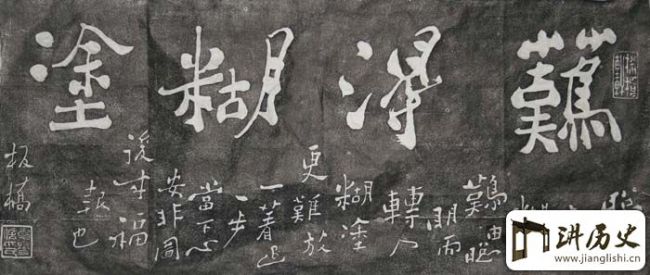 難得糊塗
聰
難由聰
明而
轉入
糊塗
更難放
一著退
一步
當下心
安非圖
後来福
報也
板橋
讲历史
www.jianglishi.cn